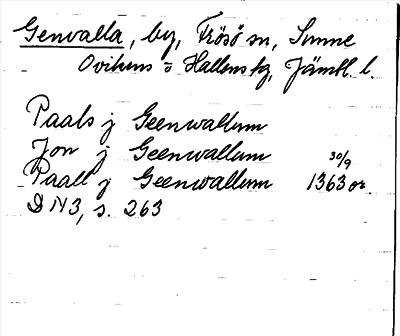 Genvalla, by, Frösö sn, Sunne
Ovikens o Hallens tg, Jämtl. l.
Paals j Geenwallum
Jon j Geenwallum 30/9
Paall j Geenwallum 1363 or.
DN 3, s. 263